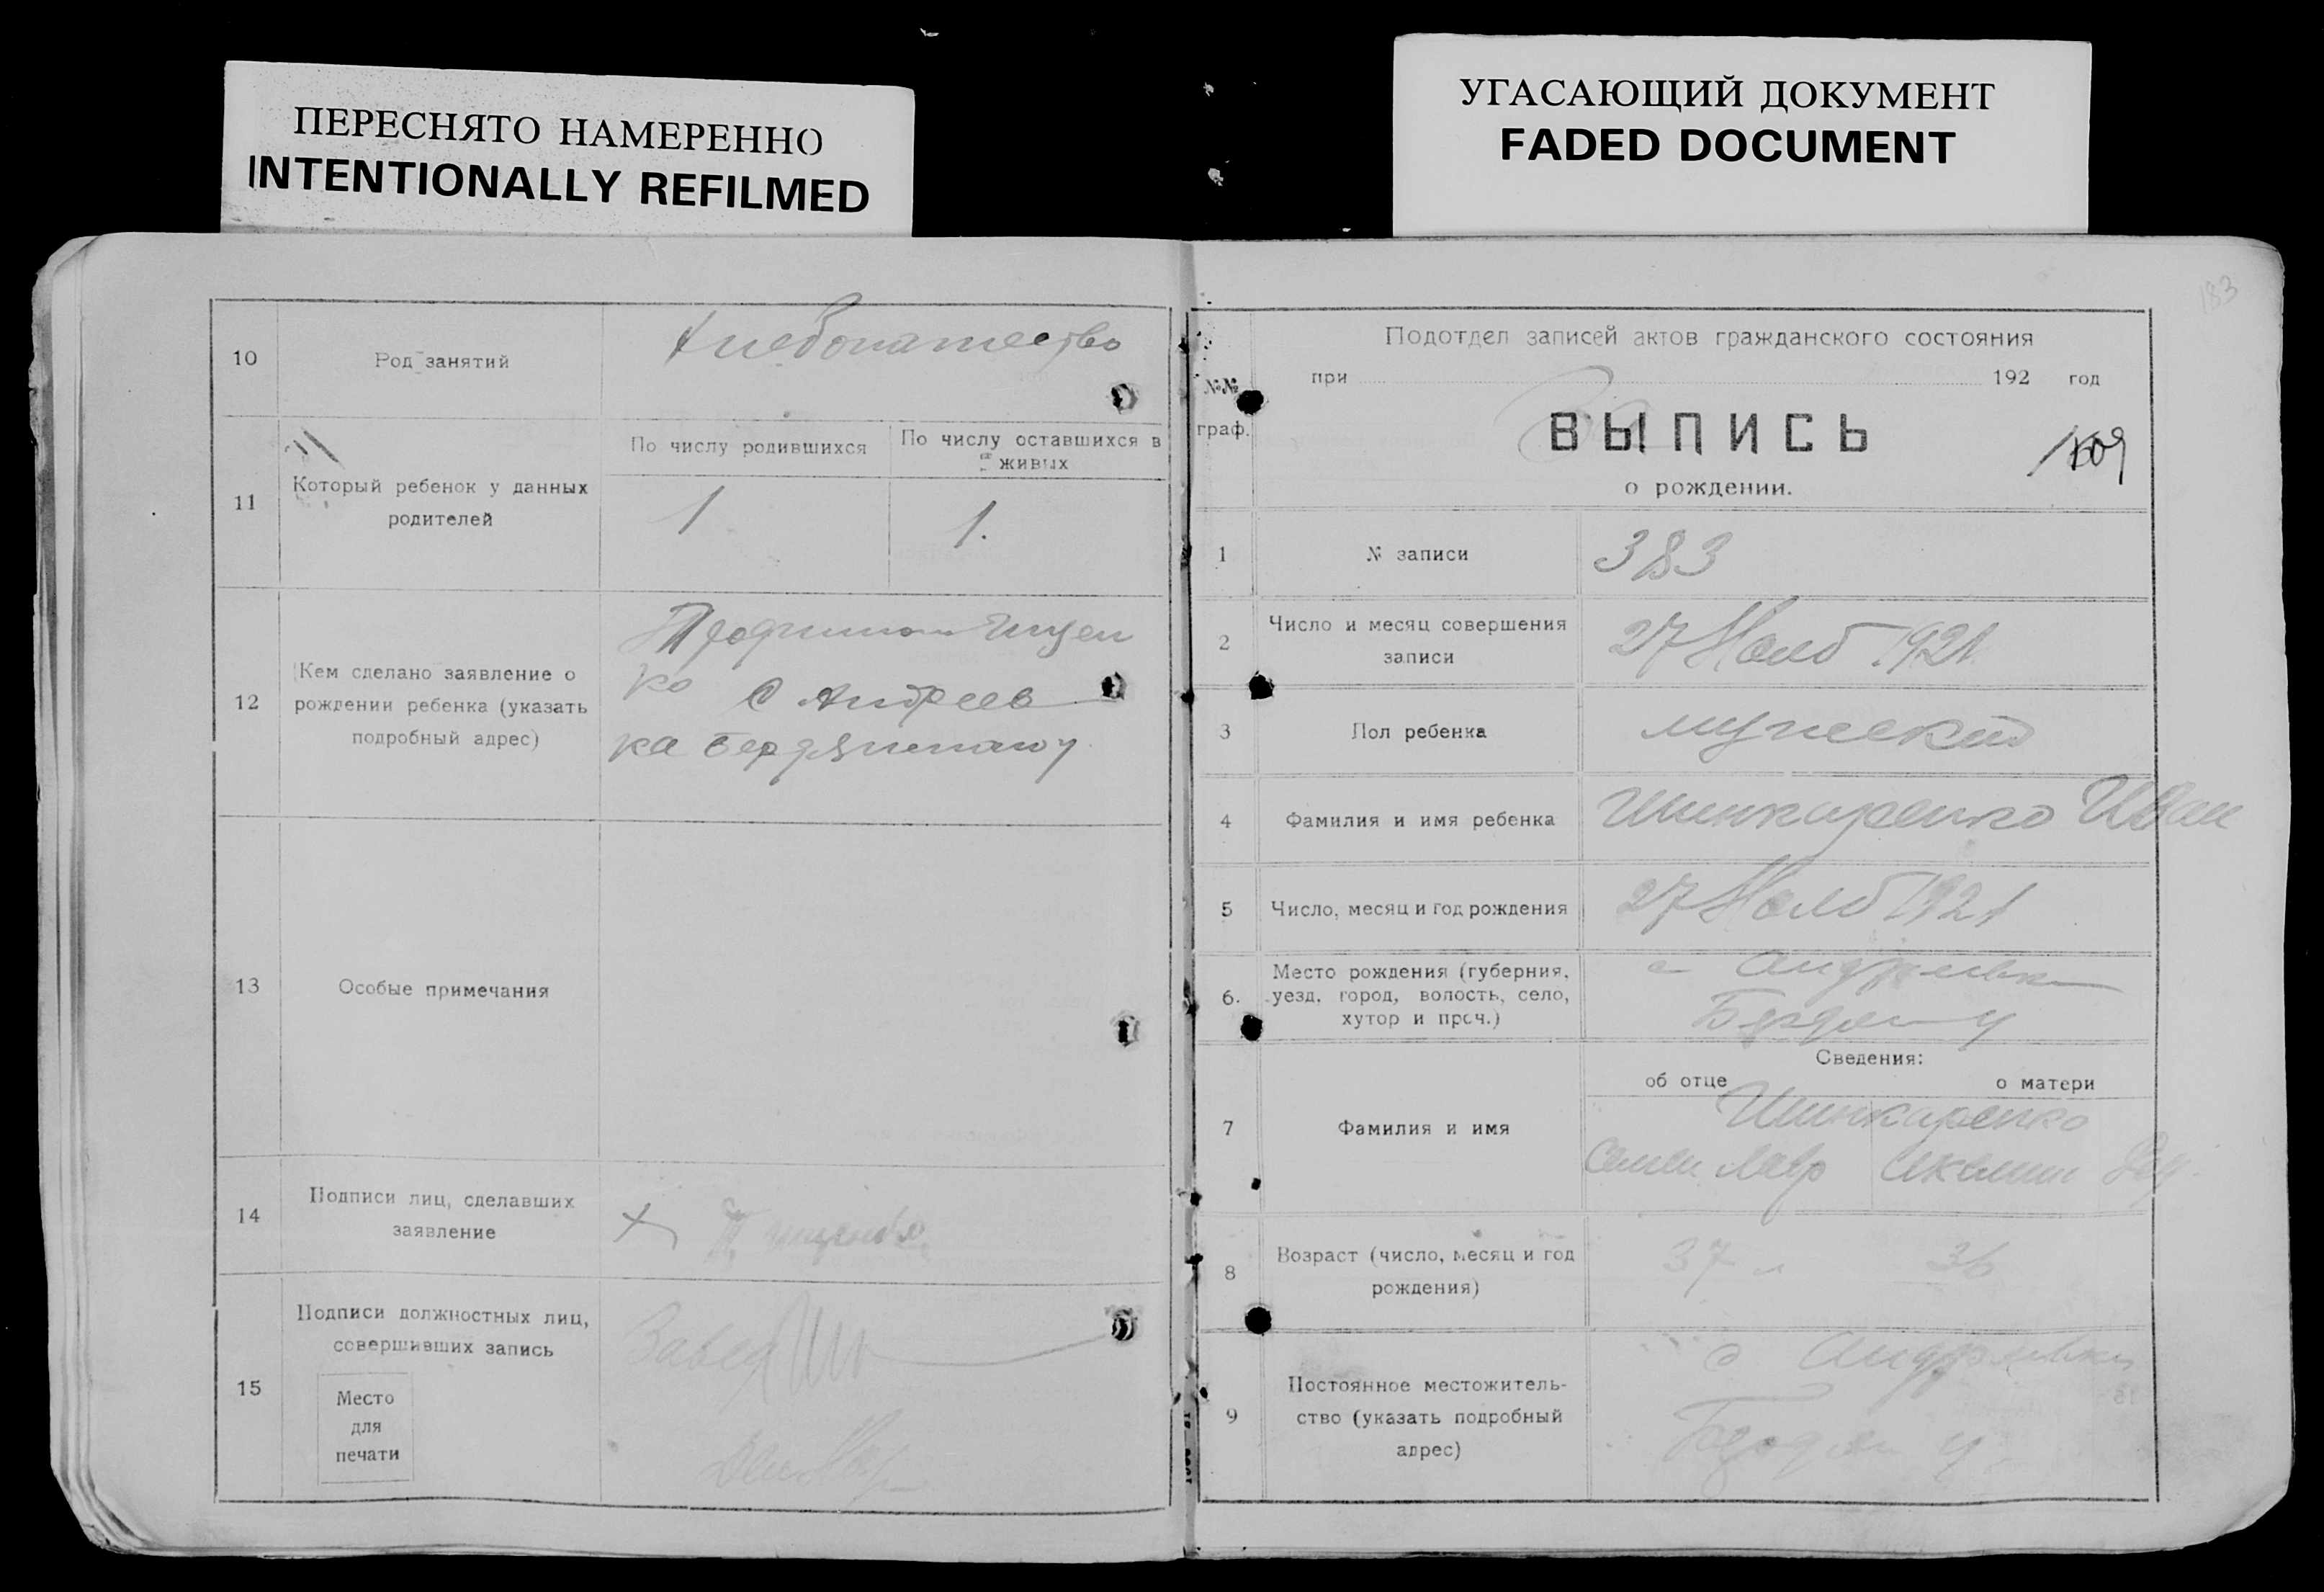 ПЕРЕСНЯТО НАМЕРЕННО
INTENTIONALLY REFILMED
УГАСАЮЩИЙ ДОКУМЕНТ
FADED DOCUMENT
10
Род занятий
Хлебопашество
11
Который ребенок у данных
родителей
По числу родившихся
По числу оставшихся в
живых
1
1.
12
Кем сделано заявление о
рождении ребенка (указать
подробный адрес)
ко С Андреев
ка Бердянского у
13
Особые примечания
14
Подписи лиц, сделавших
заявление
+
15
Подписи должностных лиц,
совершивших запись
Место
для
печати
Завед
183
№№
граф.
Подотдел записей актов гражданского состояния
при 192 год
ВЫПИСЬ
о рождении.
1
№ записи
383
2
Число и месяц совершения
записи
27 Нояб 1921
3
Пол ребенка
мужеский
4
Фамилия и имя ребенка
Шинкаренко Иван
5
Число, месяц и год рождения
27 Нояб 1921
6.
Место рождения (губерния,
уезд, город, волость, село,
хутор и проч.)
с Андреевка
Бердян у
Сведения:
об отце
о матери
7
Фамилия и имя
Шинкаренко
Семен Лавр
8
Возраст (число, месяц и год
рождения)
37 л
36
9
Постоянное местожитель-
ство (указать подробный
адрес)
с Андреевка
Бердян у